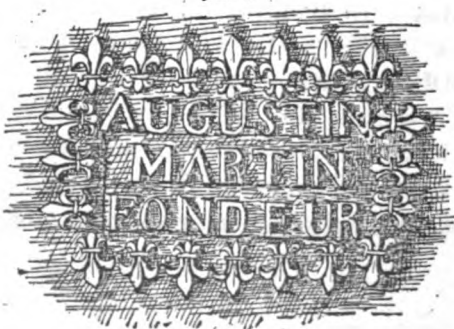 AUGUSTIN
MARTIN
FONDEUR